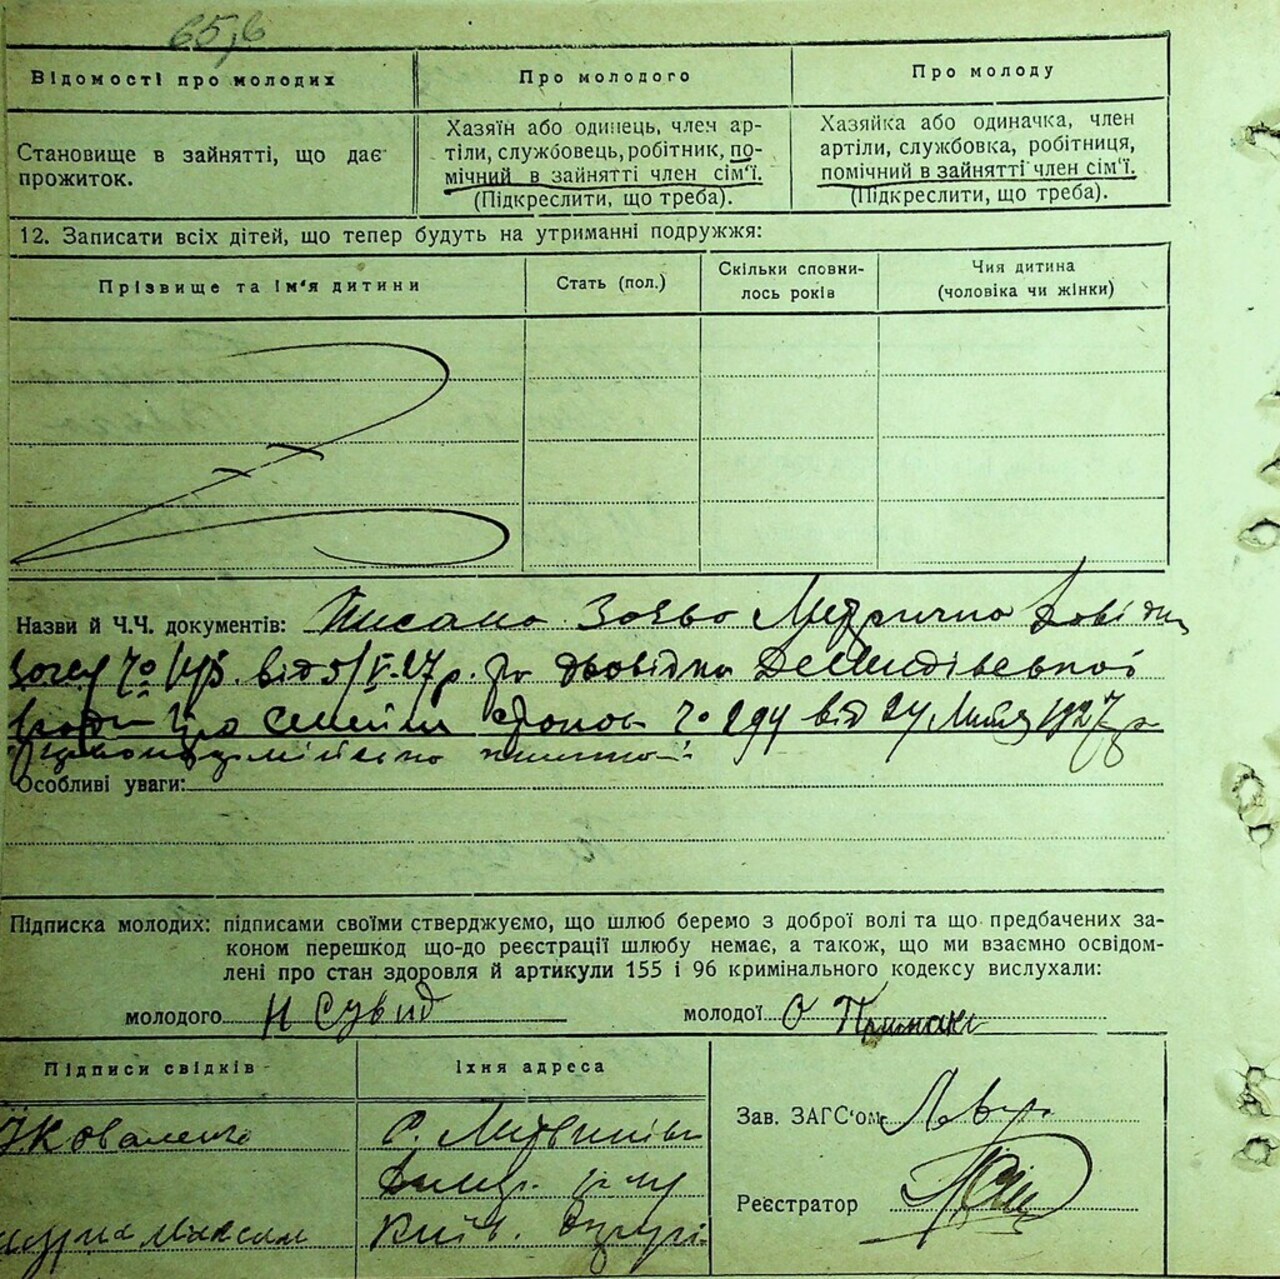 65,6
Відомості про молодих
Про молодого
Про молоду
Становище в зайнятті, що дає
прожиток.
Хазяїн або одинець, член ар-
тіли, службовець, робітник, по-
мічний в зайнятті член сім'ї.
(Підкреслити, що треба).
Хазяйка або одиначка, член
артіли, службовка, робітниця,
помічний в зайнятті член сім'ї.
(Підкреслити, що треба).
12. Записати всіх дітей, що тепер будуть на утриманні подружжя:
Прізвище та ім'я дитини
Стать (пол.)
Скільки сповни-
лось років
Чия дитина
(чоловіка чи жінки)
Назви й Ч.Ч. документів:
від 5/V-27 р. довідка Демидівської
294 від 24 1927 р
Особливі уваги:
Підписка молодих: підписами своїми стверджуємо, що шлюб беремо з доброї волі та що предбачених за-
коном перешкод що-до реєстрації шлюбу немає, а також, що ми взаємно освідом-
лені про стан здоровля й артикули 155 і 96 кримінального кодексу вислухали:
молодого Н Сувид
молодої О
Підписи свідків
Їхня адреса
Коваленко
С. Литвинівка
Зав. ЗАГС'ом
Реєстратор
Максим
Київ.